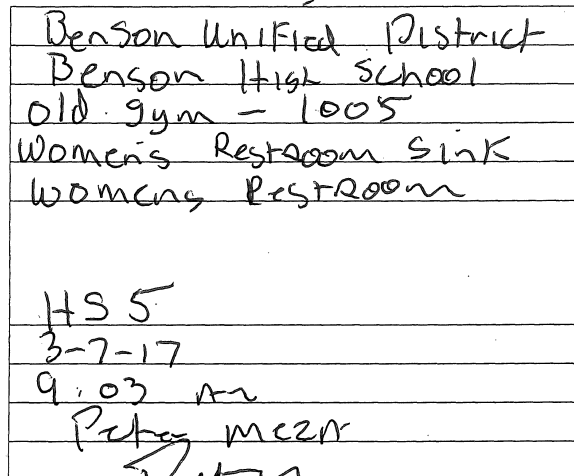 Benson Unified District
Benson High School
old gym - 1005
Women's Restroom Sink
Womens Restroom
HS 5
3-7-17
9:03 AM
Peter Meza